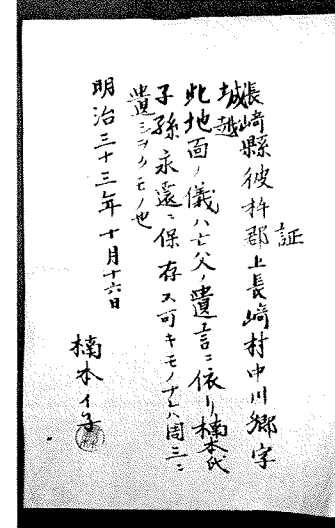 証
長崎縣彼杵郡上長崎村中川郷字
城越
此地面ノ儀ハ亡父ノ遺言ニ依リ楠本氏
子孫永遠ニ保存ス可キモノナレハ周三ニ
遺シヲクモノ也
明治三十三年十月十六日
楠本イ子